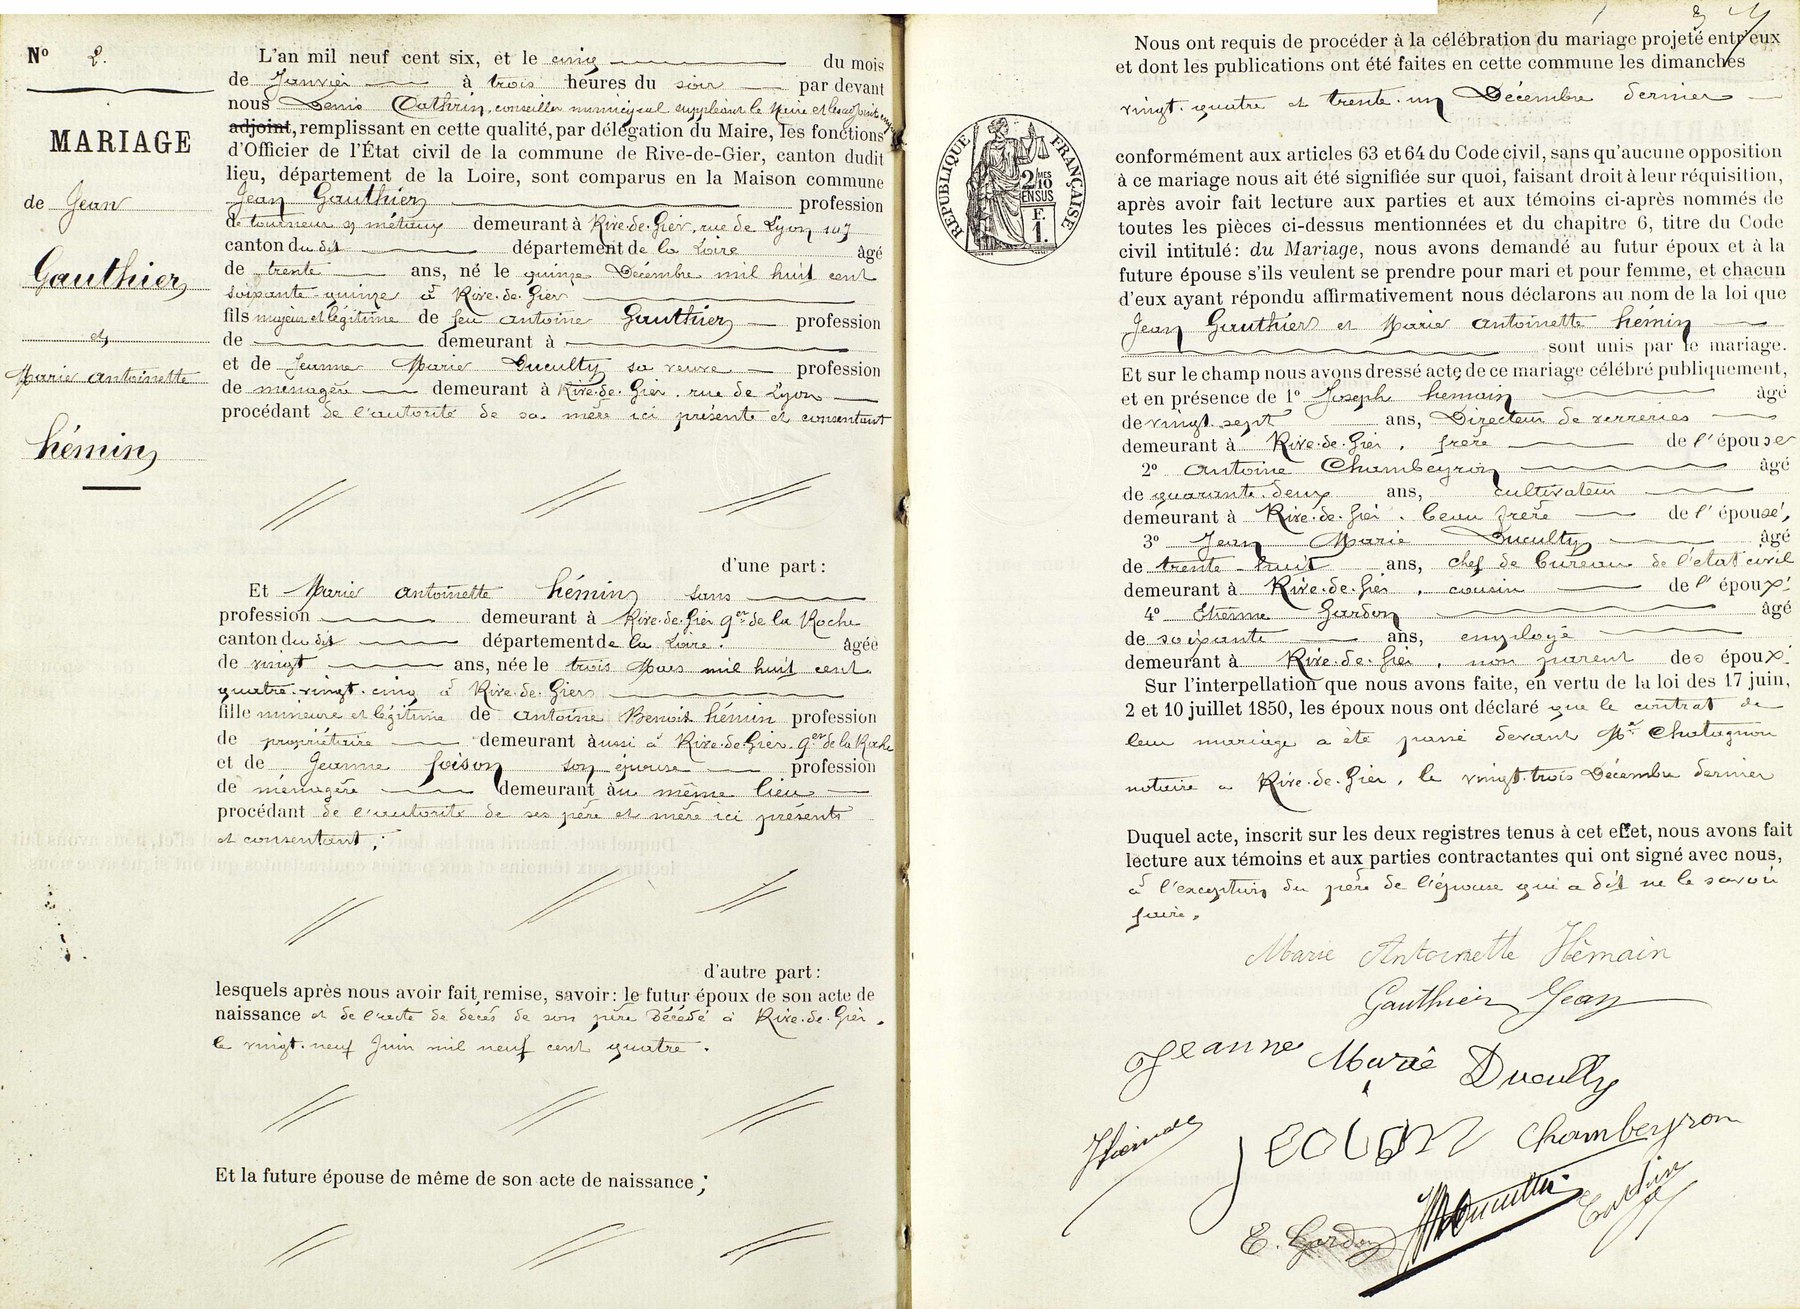 N° 2.
MARIAGE
de Jean
Gauthier
et
Marie antoinette
hémin
L'an mil neuf cent six, et le cinq du mois
de Janvier à trois heures du soir par devant
nous Denis Cathrin, conseiller municipal suppléant le Maire et les adjoints
adjoint, remplissant en cette qualité, par délégation du Maire, les fonctions
d'Officier de l'État civil de la commune de Rive-de-Gier, canton dudit
lieu, département de la Loire, sont comparus en la Maison commune
Jean Gauthier profession
de tourneur s/ métaux demeurant à Rive-de-Gier, rue de Lyon 107
canton du dit département de la Loire âgé
de trente ans, né le quinze Décembre mil huit cent
soixante-quinze à Rive-de-Gier
fils majeur et légitime de feu antoine Gauthier profession
de demeurant à
et de Jeanne Marie Duculty sa veuve profession
de ménagère demeurant à Rive-de-Gier, rue de Lyon
procédant de l'autorité de sa mère ici présente et consentant
d'une part :
Et Marie antoinette hémin sans
profession demeurant à Rive-de-Gier qer de la Roche
canton du dit département de la Loire. âgée
de vingt ans, née le trois Mars mil huit cent
quatre-vingt-cinq à Rive-de-Gier
fille mineure et légitime de antoine Benoit hémin profession
de propriétaire demeurant aussi à Rive-de-Gier qer de la Roche
et de Jeanne foison son épouse profession
de ménagère demeurant au même lieu
procédant de l'autorité de ses père et mère ici présents
et consentant ;
d'autre part :
lesquels après nous avoir fait remise, savoir : le futur époux de son acte de
naissance et de l'acte de décès de son père décédé à Rive-de-Gier,
le vingt-neuf Juin mil neuf cent quatre.
Et la future épouse de même de son acte de naissance ;
Nous ont requis de procéder à la célébration du mariage projeté entr'eux
et dont les publications ont été faites en cette commune les dimanches
vingt-quatre et trente-un Décembre dernier
RÉPUBLIQUE FRANÇAISE
2/10MES
EN SUS
F.
1.
conformément aux articles 63 et 64 du Code civil, sans qu'aucune opposition
à ce mariage nous ait été signifiée sur quoi, faisant droit à leur réquisition,
après avoir fait lecture aux parties et aux témoins ci-après nommés de
toutes les pièces ci-dessus mentionnées et du chapitre 6, titre du Code
civil intitulé : du Mariage, nous avons demandé au futur époux et à la
future épouse s'ils veulent se prendre pour mari et pour femme, et chacun
d'eux ayant répondu affirmativement nous déclarons au nom de la loi que
Jean Gauthier et Marie antoinette hémin
sont unis par le mariage.
Et sur le champ nous avons dressé acte de ce mariage célébré publiquement,
et en présence de 1° Joseph hemain âgé
de vingt-sept ans, Directeur de verreries
demeurant à Rive-de-Gier, frère de l'épouse
2° antoine Chambeyron âgé
de quarante-deux ans, cultivateur
demeurant à Rive-de-Gier, beau frère de l'épouse,
3° Jean Marie Duculty âgé
de trente-huit ans, chef de bureau de l'état civil
demeurant à Rive-de-Gier, cousin de l'époux
4° Etienne Gardon âgé
de soixante ans, employé
demeurant à Rive-de-Gier, non parent des époux.
Sur l'interpellation que nous avons faite, en vertu de la loi des 17 juin,
2 et 10 juillet 1850, les époux nous ont déclaré que le contrat de
leur mariage a été passé devant Me Chatagnon
notaire à Rive-de-Gier, le vingt-trois Décembre dernier
Duquel acte, inscrit sur les deux registres tenus à cet effet, nous avons fait
lecture aux témoins et aux parties contractantes qui ont signé avec nous,
à l'exception du père de l'épouse qui a dit ne le savoir
faire.
Marie Antoinette Hémain
Gauthier Jean
Jeanne Marie Duculty
Chambeyron
E. Gardon JMDuculty